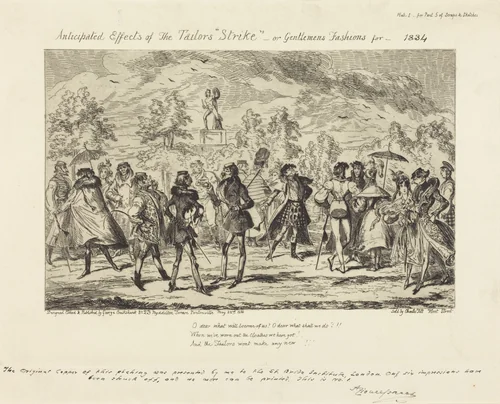 Plate 1 - for Part 5 of Scraps & Sketches
Anticipated Effects of The Tailors "Strike" — or Gentlemens Fashions for — 1834
Designed Etched & Published by George Cruikshank May 1834
Sold by Charles Tilt Fleet Street
O dear what will become of us? O dear what shall we do?!!
When we've worn out the Clothes we have got,
And the Tailors wont make any new ?!!!
The Original Copper of this etching was presented by me to the Art Institute, London. Only six impressions have
been struck off, and no more can be printed. This is No. 1